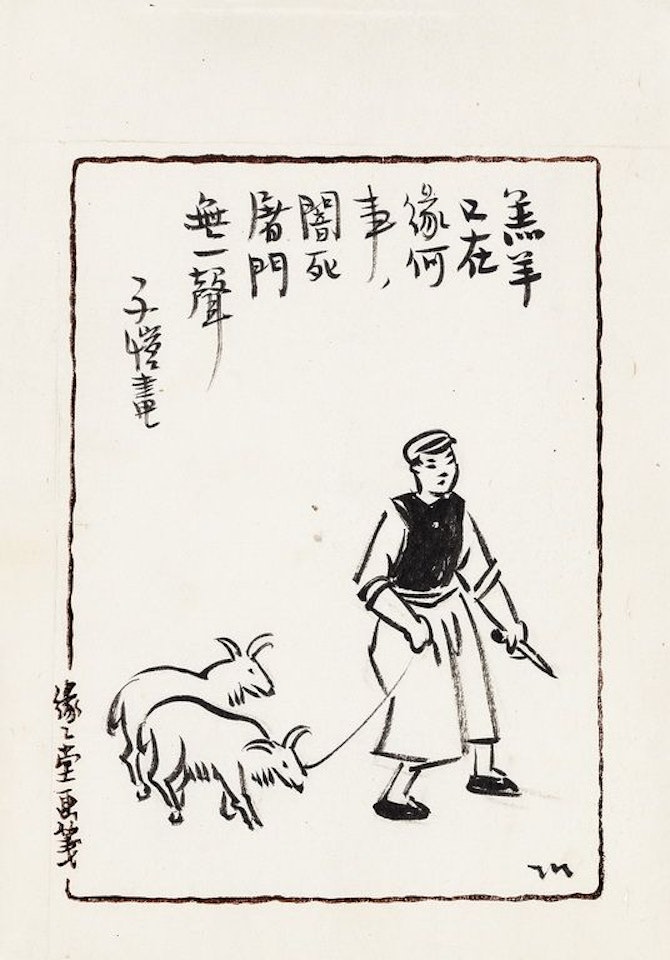 羔羊
口在
緣何
事，
闇死
屠門
無一聲
子愷畫
緣〻堂画箋
TK